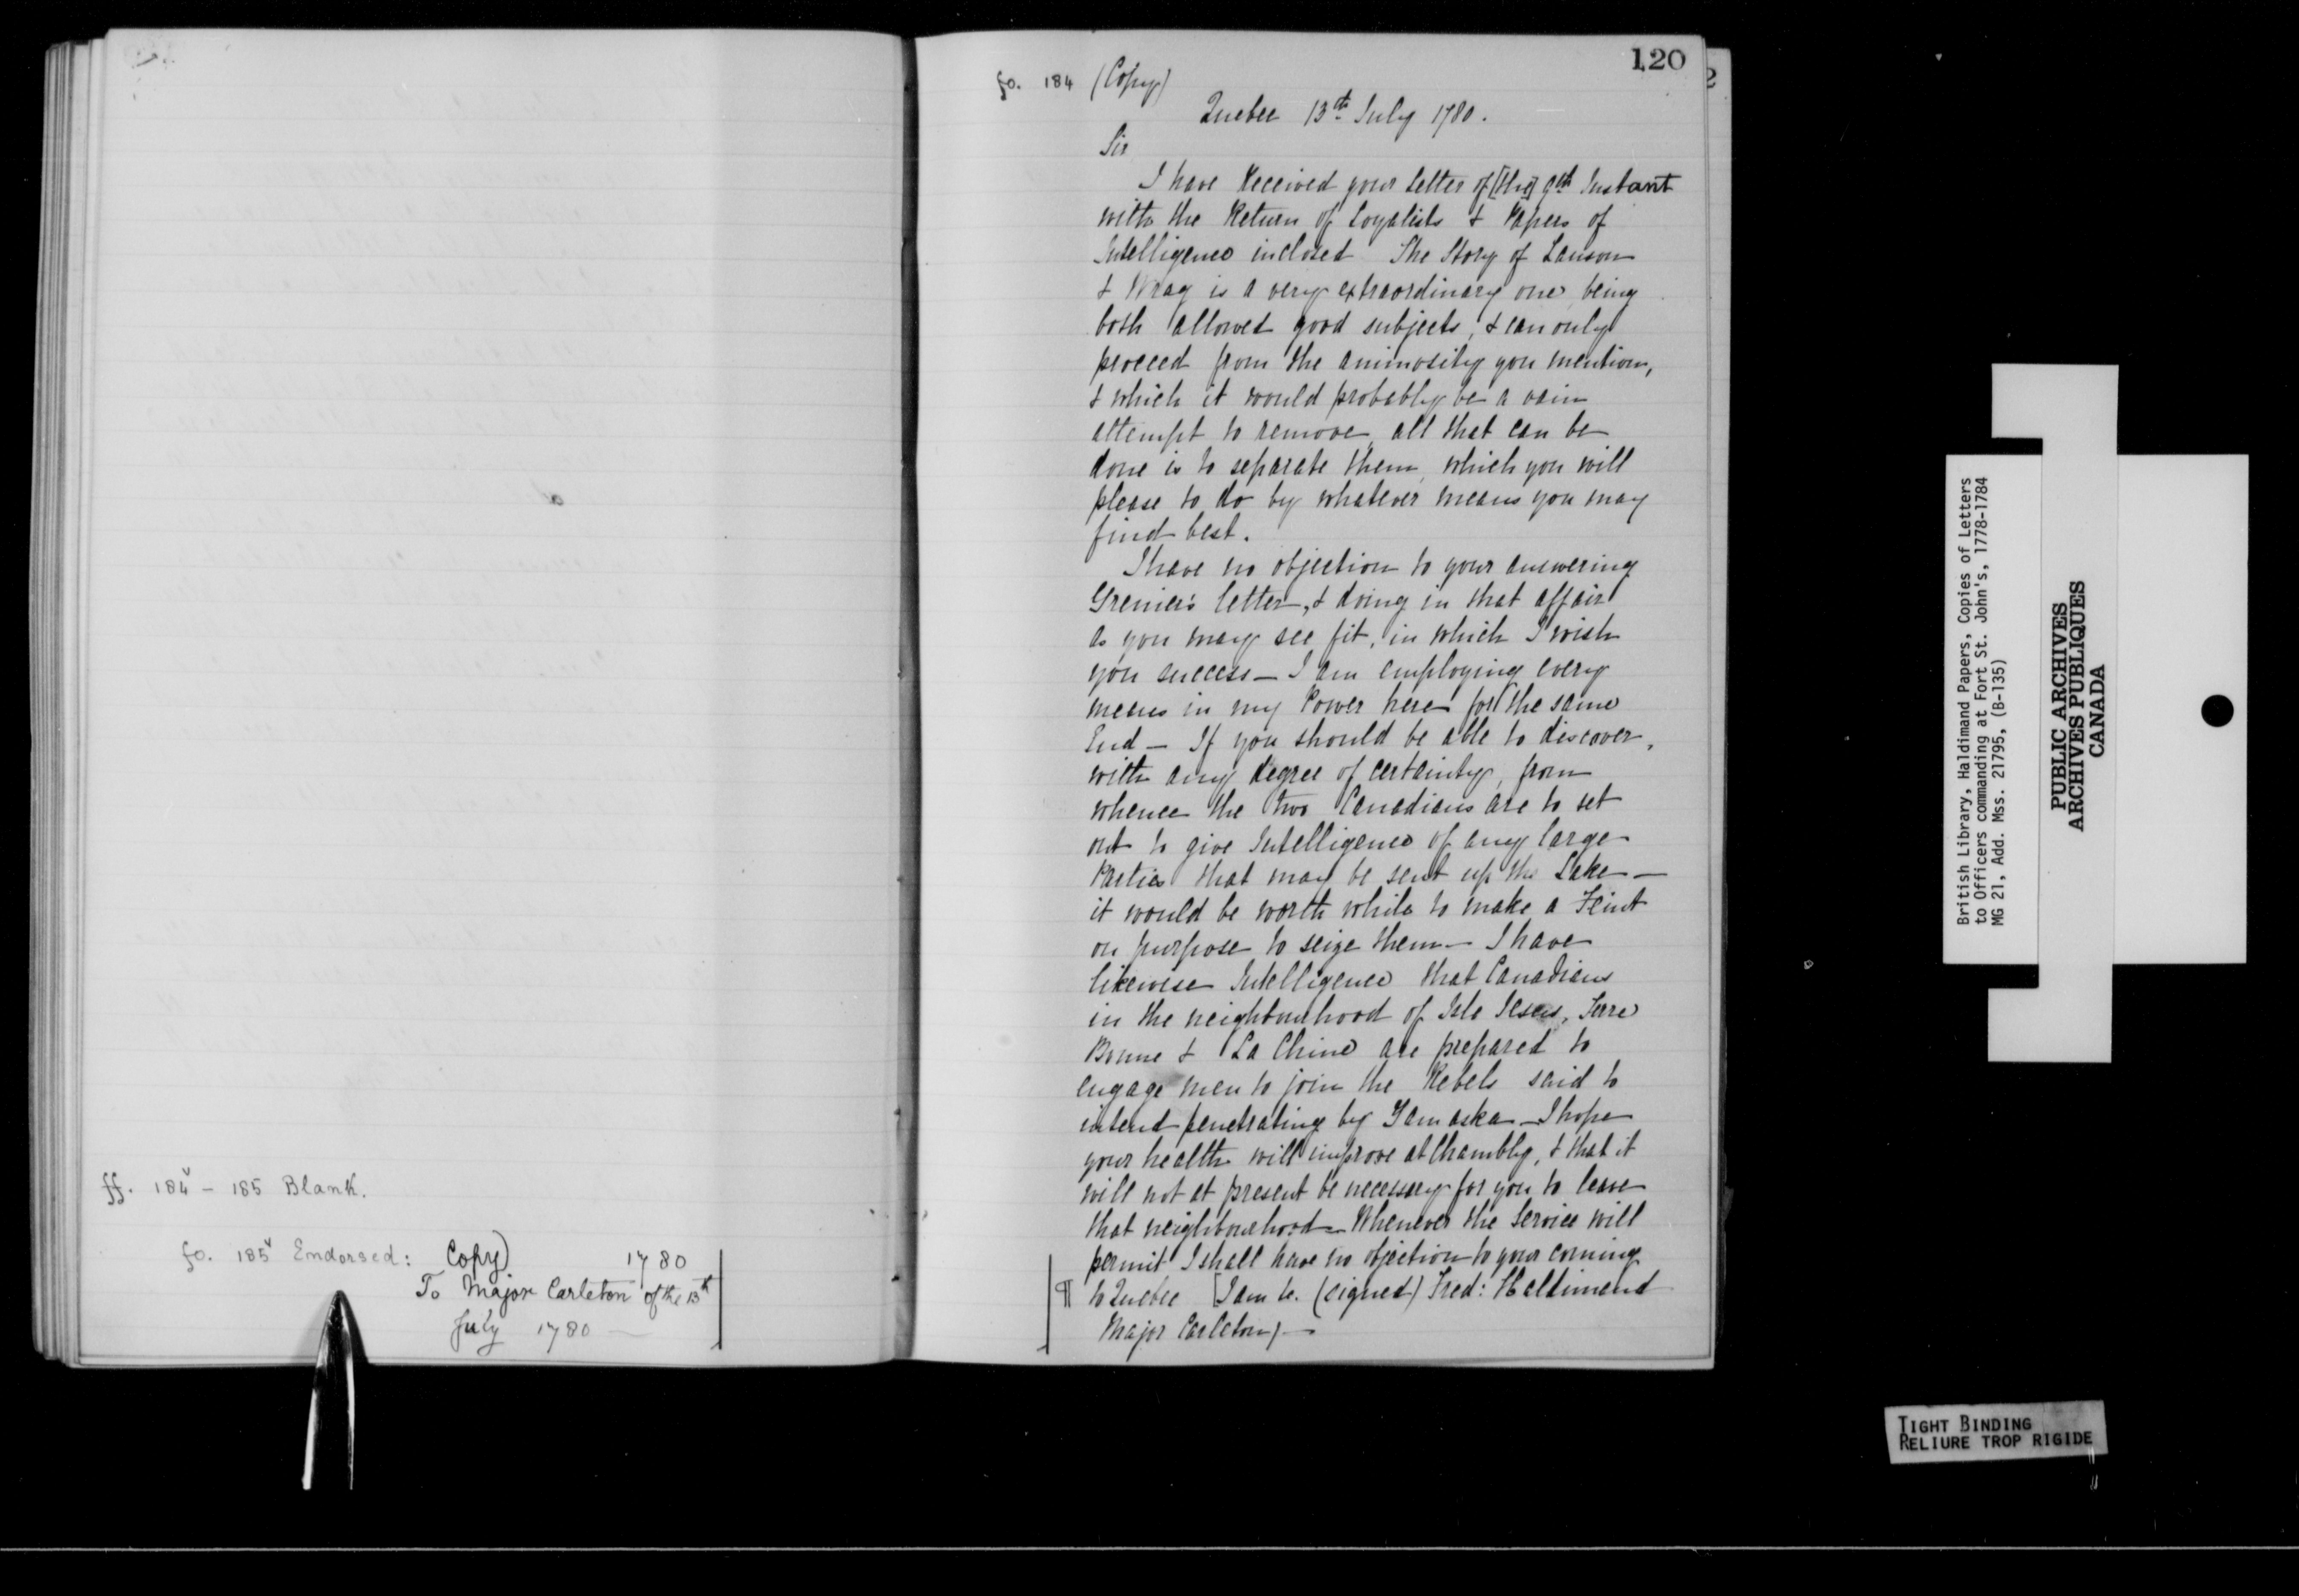 ff. 184v - 185 Blank.
fo. 185v Endorsed: Copy) 1780
To Major Carleton of the 13th
July 1780 —
120
fo. 184 (Copy)
Quebec 13th July 1780.
Sir
I have Received your Letter of [the] 9th Instant
with the Return of Loyalists & Papers of
Intelligence inclosed The Story of Lanson
& Wrag is a very extraordinary one being
both allowed good subjects, & can only
proceed from the animosity you mention,
& which it would probably be a vain
attempt to remove, all that can be
done is to separate them, which you will
please to do by whatever means you may
find best.
I have no objection to your answering
Grenier's letter, & doing in that affair
as you may see fit, in which I wish
you success — I am employing every
means in my Power here for the same
End — If you should be able to discover,
with any degree of certainty, from
whence the two Canadians are to set
out to give Intelligence of any large
Parties that may be sent up the Lake —
it would be worth while to make a Feint
on purpose to seize them — I have
likewise Intelligence that Canadians
in the neighbourhood of Isle Jesus, Terre
Bonne & La Chine are prepared to
engage men to join the Rebels said to
intend penetrating by Yamaska — I hope
your health will improve at Chambly, & that it
will not at present be necessary for you to leave
that neighbourhood — Whenever the Service will
permit I shall have no objection to your coming
¶ to Quebec [I am &c. (signed) Fred: Haldimand
Major Carleton) —
British Library, Haldimand Papers, Copies of Letters
to Officers commanding at Fort St. John's, 1778-1784
MG 21, Add. Mss. 21795, (B-135)
PUBLIC ARCHIVES
ARCHIVES PUBLIQUES
CANADA
TIGHT BINDING
RELIURE TROP RIGIDE